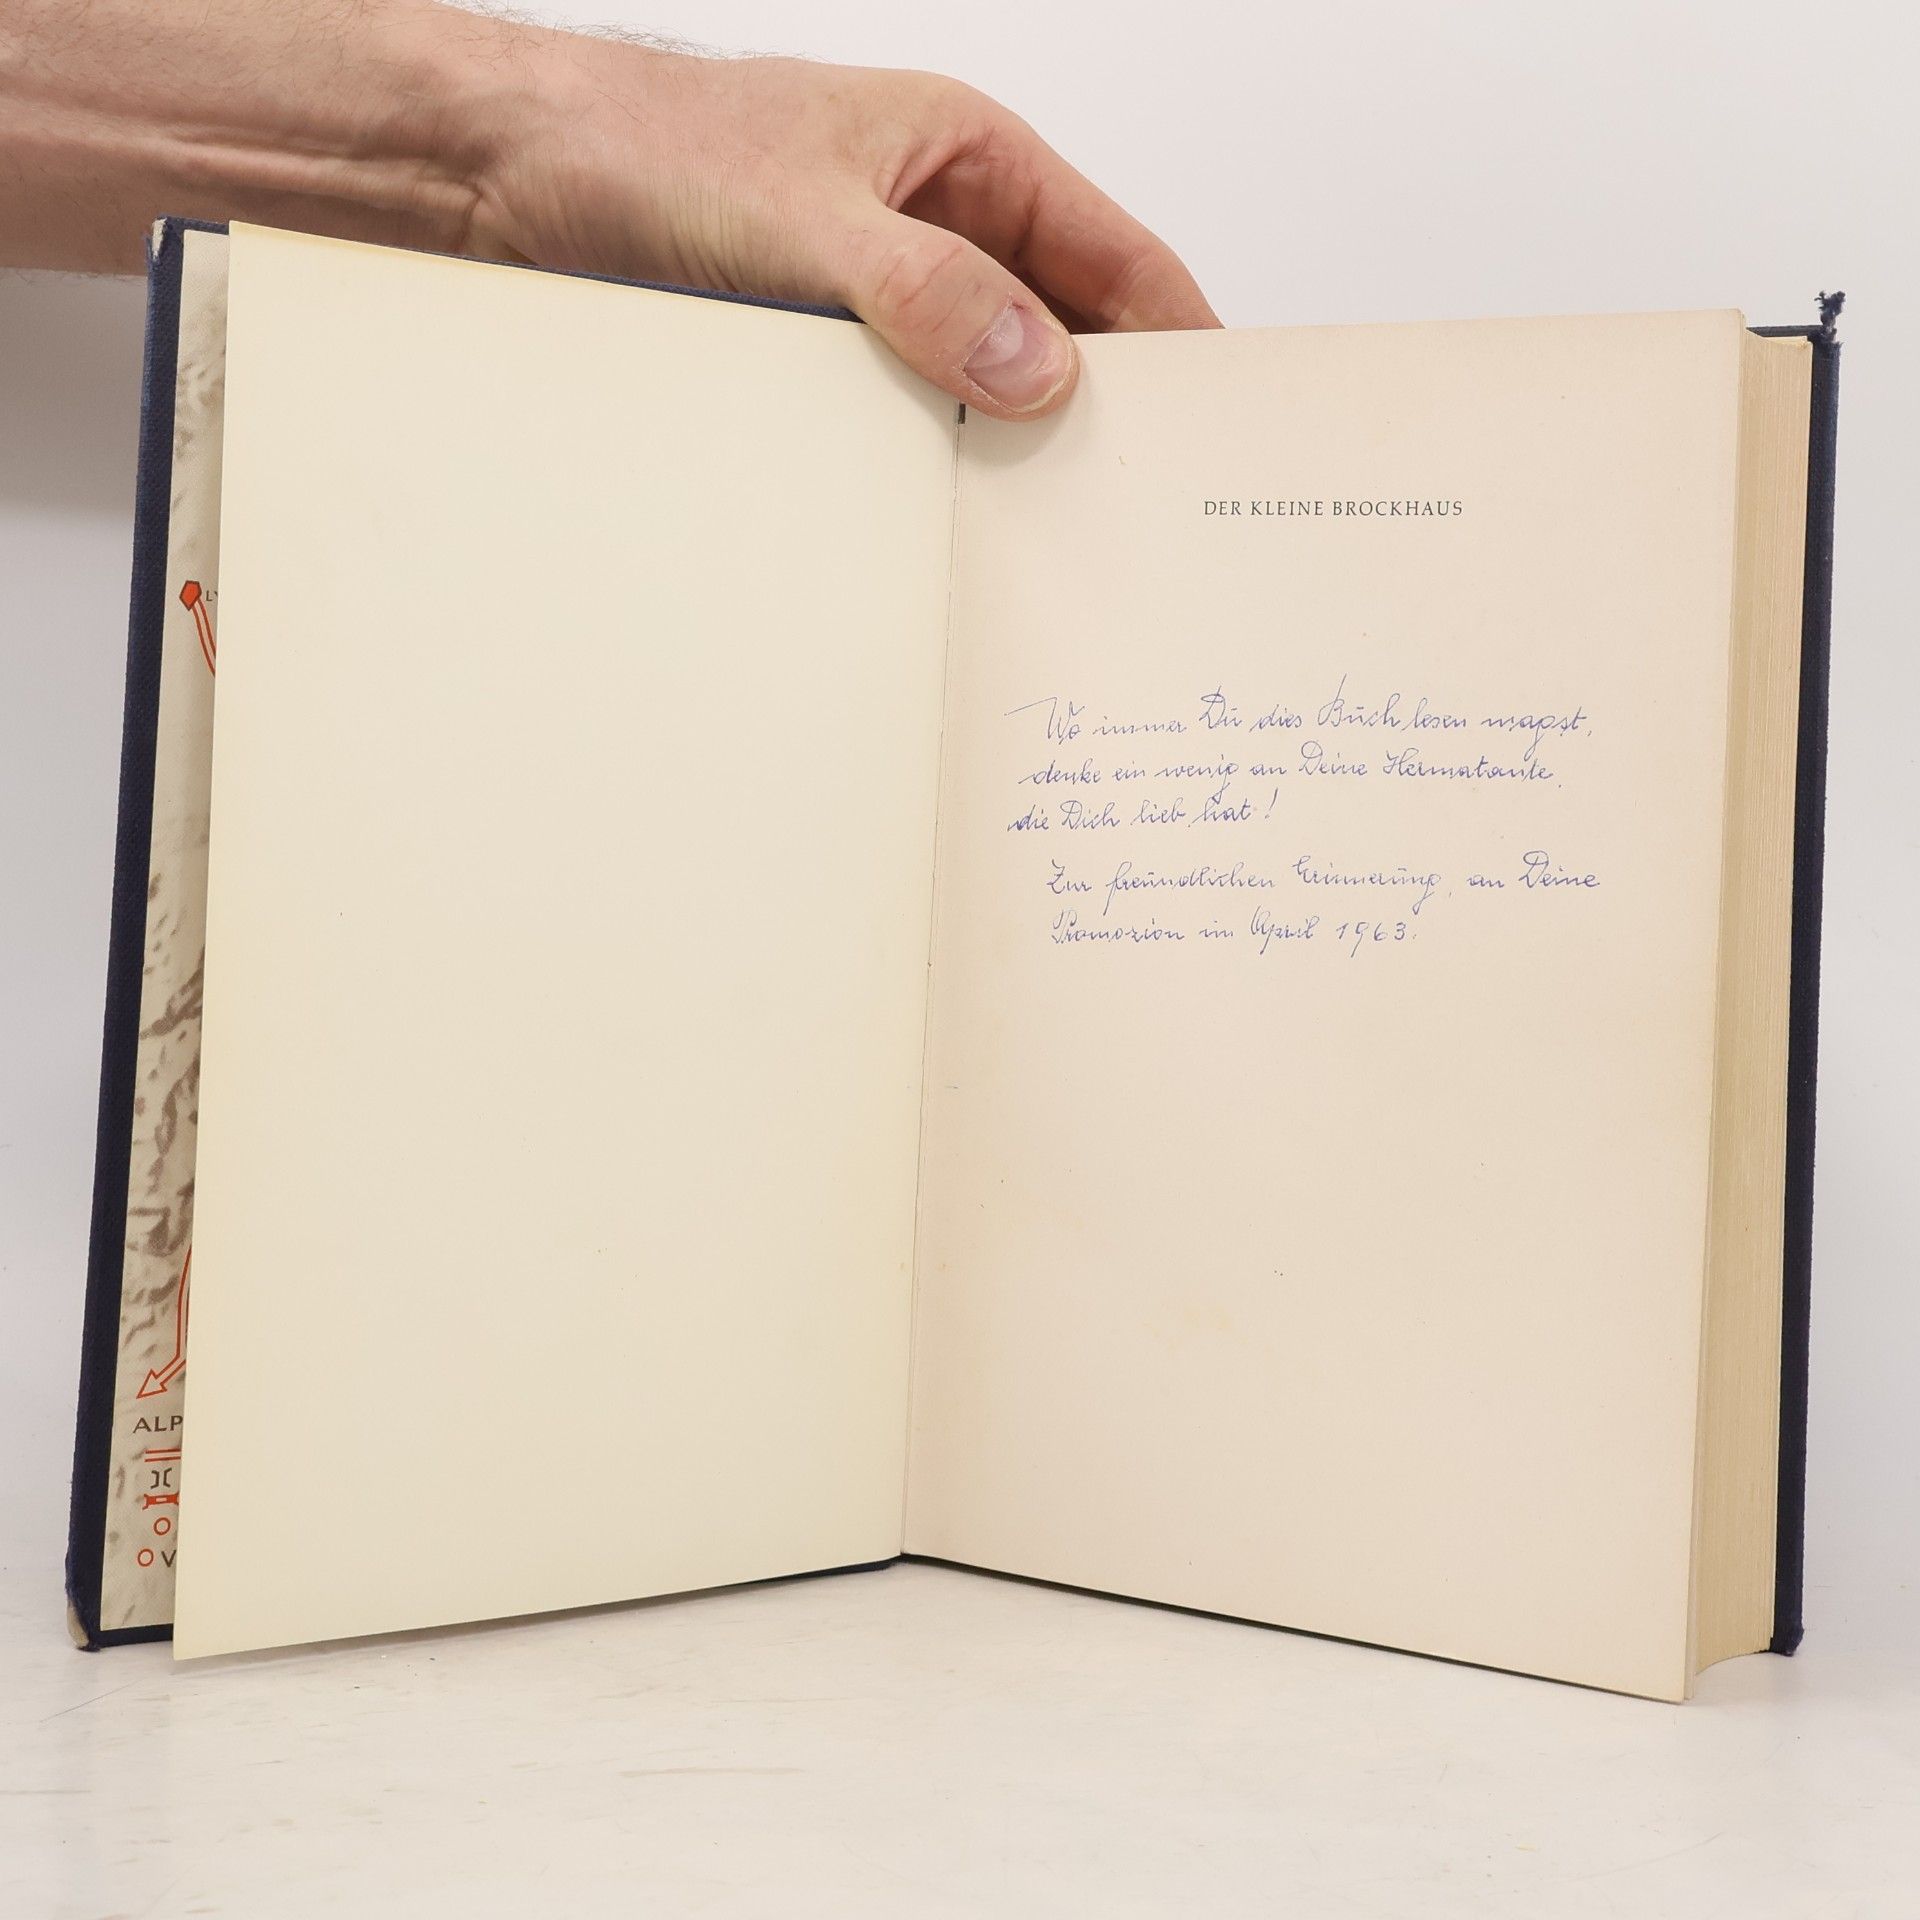 DER KLEINE BROCKHAUS
Wo immer Du dies Buch lesen magst,
denke ein wenig an Deine Hermatante,
die Dich lieb hat!
Zur freundlichen Erinnerung, an Deine
Promozion im April 1963.
ALP
O
O V